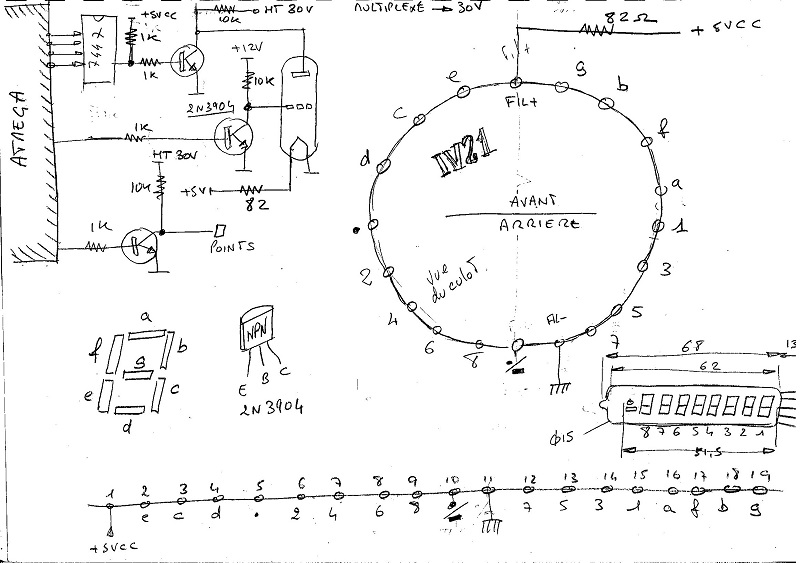 +5VCC
10K
HT 30V
MULTIPLEXE → 30V
82Ω
+5VCC
7447
1K
1K
+12V
10K
2N3904
ATMEGA
1K
HT 30V
10K
+5V
82
1K
POINTS
Fil+
FIL+
e
g
b
c
f
d
a
IV21
AVANT
ARRIERE
1
.
3
2
vue du culot
4
5
6
8
FIL-
7
a
f
b
g
e
c
d
NPN
E B C
2N3904
68
13
62
8 7 6 5 4 3 2 1
Φ15
51,5
1 2 3 4 5 6 7 8 9 10 11 12 13 14 15 16 17 18 19
e c d . 2 4 6 8 7 5 3 1 a f b g
+5VCC